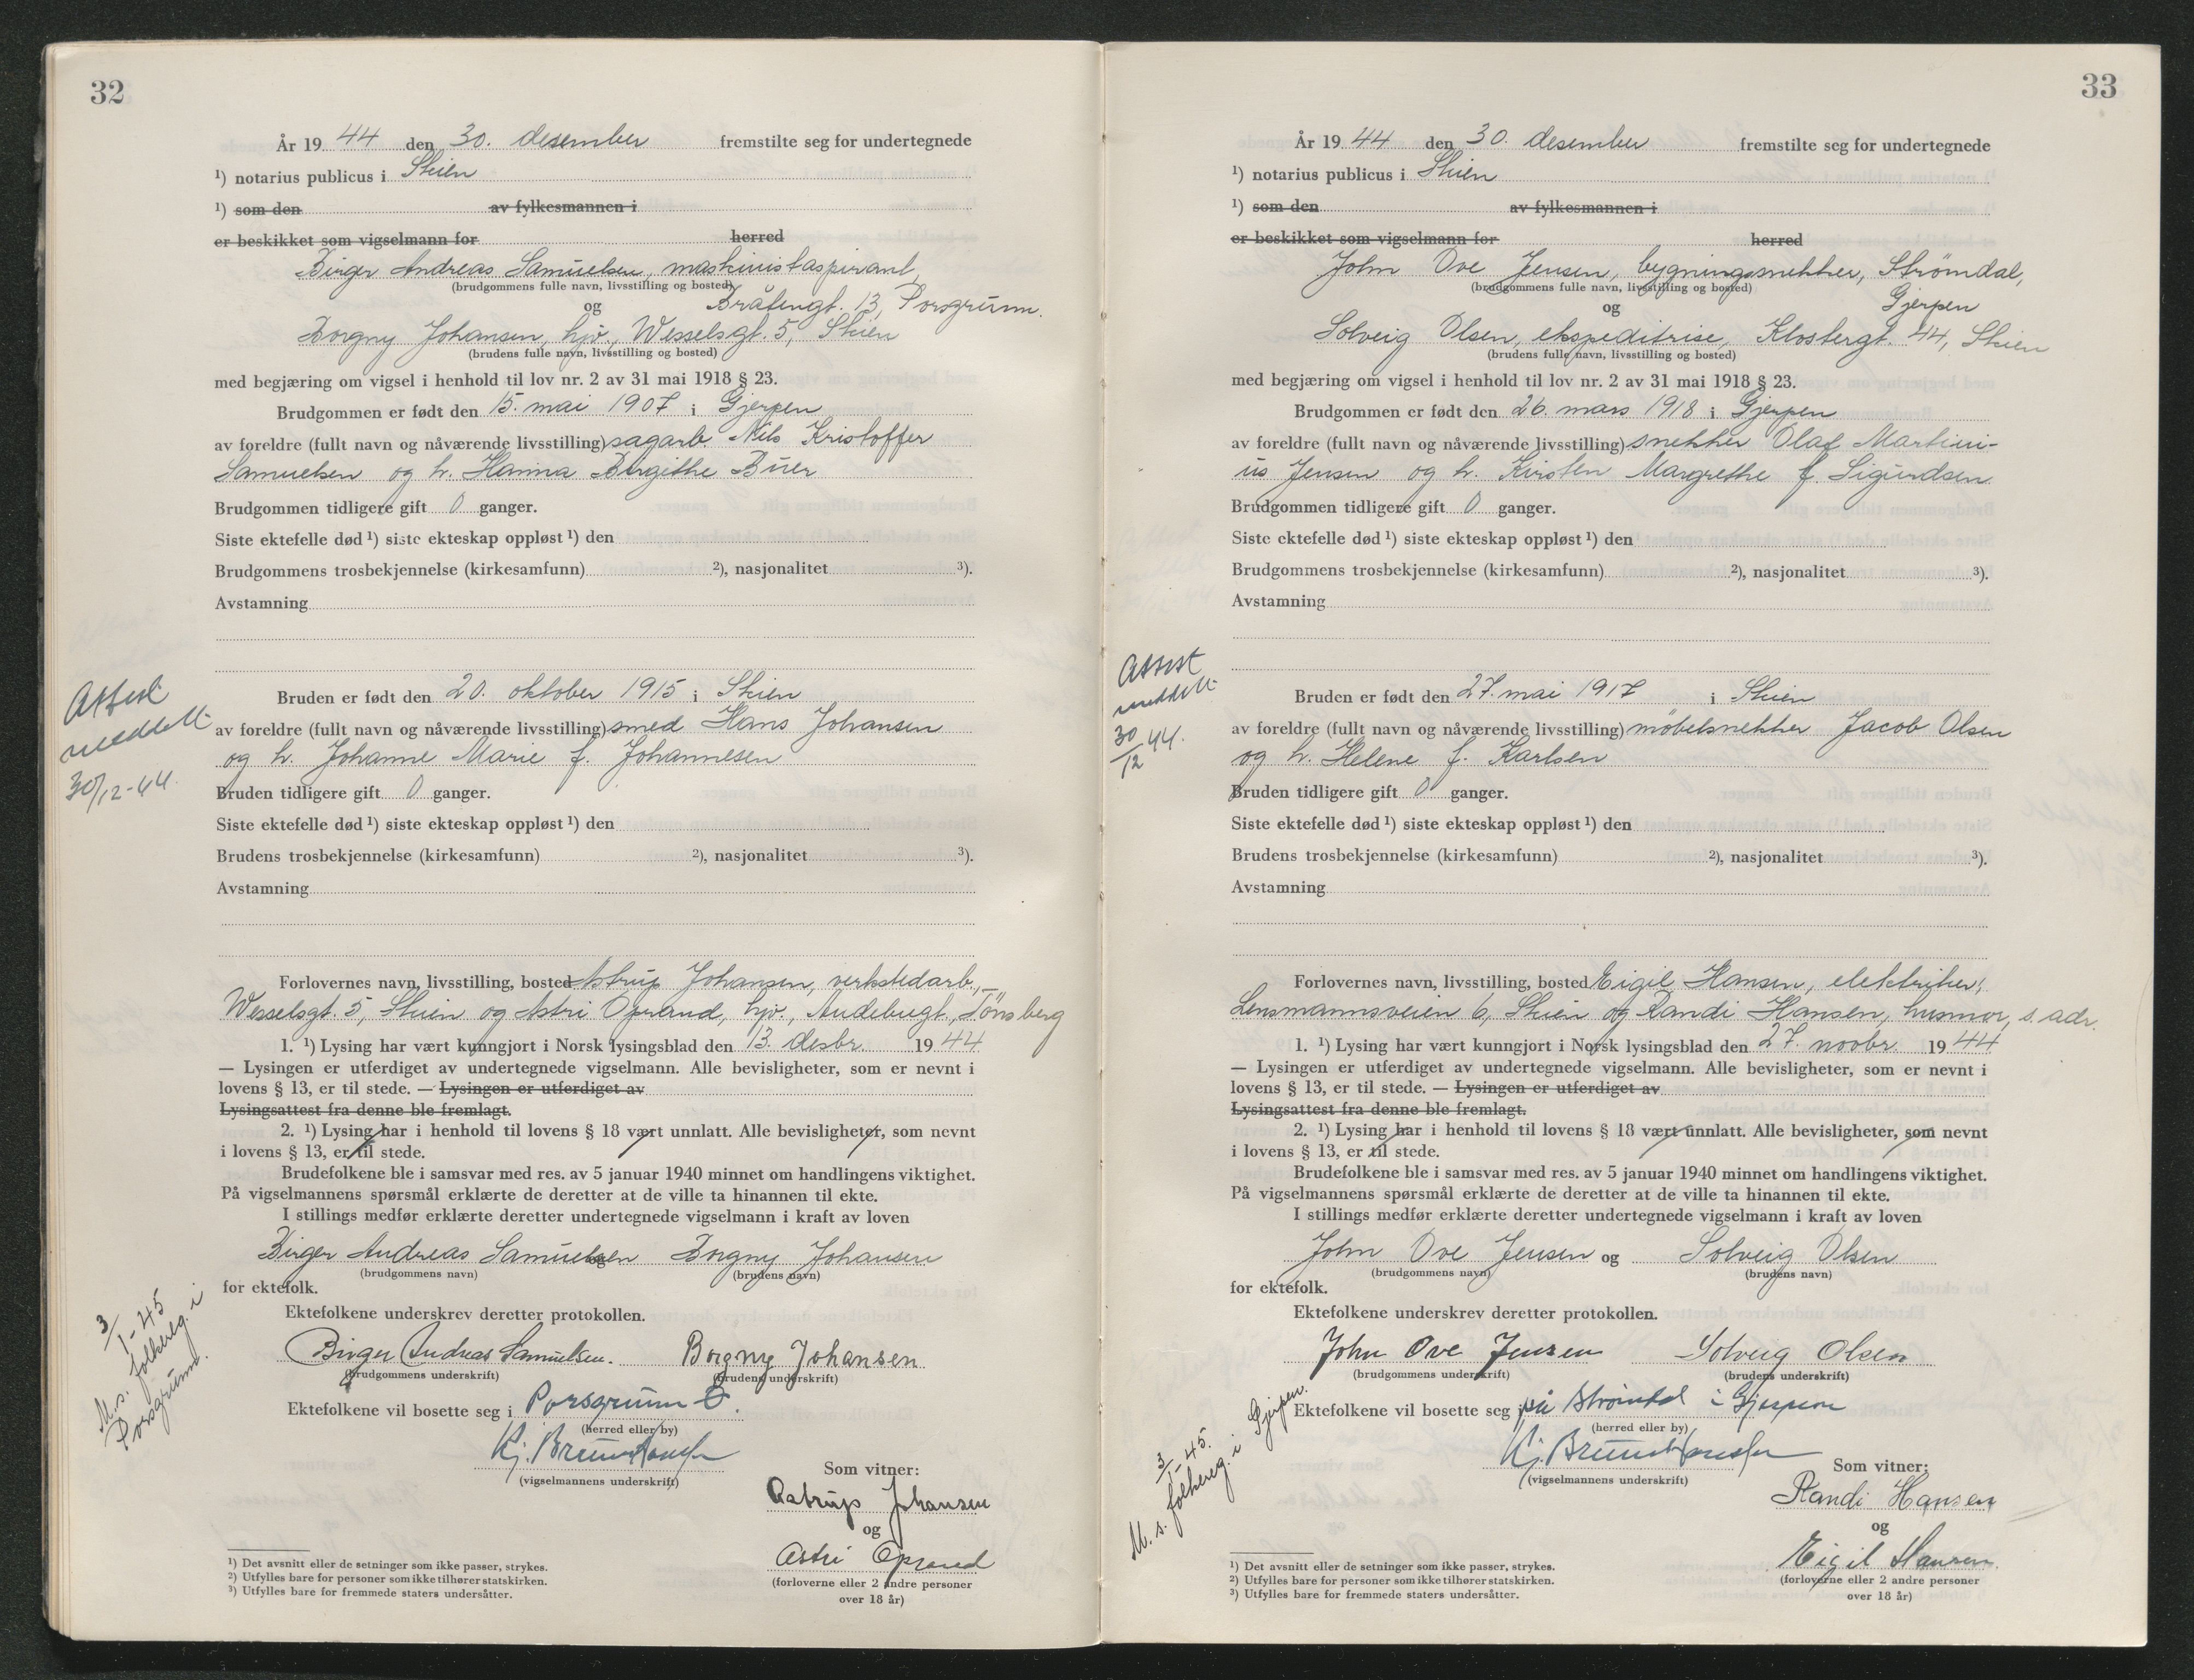 32
År 19 44 den 30. desember fremstilte seg for undertegnede
¹) notarius publicus i Skien
¹) som den av fylkesmannen i
er beskikket som vigselmann for herred
Birger Andreas Samuelsen, maskinistaspirant,
(brudgommens fulle navn, livsstilling og bosted)
og Bråtengt. 13, Porsgrunn.
Borgny Johansen, hjv., Wesselsgt. 5, Skien
(brudens fulle navn, livsstilling og bosted)
med begjæring om vigsel i henhold til lov nr. 2 av 31 mai 1918 § 23.
Brudgommen er født den 15. mai 1907 i Gjerpen
av foreldre (fullt navn og nåværende livsstilling) sagarb. Nils Kristoffer
Samuelsen og h. Hanna Birgithe Buer
Brudgommen tidligere gift 0 ganger.
Siste ektefelle død ¹) siste ekteskap oppløst ¹) den
Brudgommens trosbekjennelse (kirkesamfunn) ²), nasjonalitet ³).
Avstamning
Attest
meddelt
30/12-44.
Bruden er født den 20. oktober 1915 i Skien
av foreldre (fullt navn og nåværende livsstilling) smed Hans Johansen
og h. Johanne Marie f. Johannesen
Bruden tidligere gift 0 ganger.
Siste ektefelle død ¹) siste ekteskap oppløst ¹) den
Brudens trosbekjennelse (kirkesamfunn) ²), nasjonalitet ³).
Avstamning
Forlovernes navn, livsstilling, bosted Astrup Johansen, verkstedarb.,
Wesselsgt. 5, Skien og Astri Oprand, hjv., Audebugt., Tönsberg
1. ¹) Lysing har vært kunngjort i Norsk lysingsblad den 13. desbr. 19 44
— Lysingen er utferdiget av undertegnede vigselmann. Alle bevisligheter, som er nevnt i
lovens § 13, er til stede. — Lysingen er utferdiget av
Lysingsattest fra denne ble fremlagt.
2. ¹) Lysing har i henhold til lovens § 18 vært unnlatt. Alle bevisligheter, som nevnt
i lovens § 13, er til stede.
Brudefolkene ble i samsvar med res. av 5 januar 1940 minnet om handlingens viktighet.
På vigselmannens spørsmål erklærte de deretter at de ville ta hinannen til ekte.
I stillings medfør erklærte deretter undertegnede vigselmann i kraft av loven
Birger Andreas Samuelsen og Borgny Johansen
(brudgommens navn) (brudens navn)
for ektefolk.
Ektefolkene underskrev deretter protokollen.
Birger Andreas Samuelsen. Borgny Johansen
(brudgommens underskrift) (brudens underskrift)
Ektefolkene vil bosette seg i Porsgrunn
(herred eller by)
(vigselmannens underskrift)
3/1-45
M. s. folkereg. i
Porsgrunn.
Som vitner:
Astrup Johansen
og
Astri Oprand
(forloverne eller 2 andre personer
over 18 år)
¹) Det avsnitt eller de setninger som ikke passer, strykes.
²) Utfylles bare for personer som ikke tilhører statskirken.
³) Utfylles bare for fremmede staters undersåtter.
33
År 19 44 den 30. desember fremstilte seg for undertegnede
¹) notarius publicus i Skien
¹) som den av fylkesmannen i
er beskikket som vigselmann for herred
John Ove Jensen, bygningssnekker, Strømdal,
(brudgommens fulle navn, livsstilling og bosted)
og Gjerpen
Solveig Olsen, ekspeditrise, Klostergt. 44, Skien
(brudens fulle navn, livsstilling og bosted)
med begjæring om vigsel i henhold til lov nr. 2 av 31 mai 1918 § 23.
Brudgommen er født den 26. mars 1918 i Gjerpen
av foreldre (fullt navn og nåværende livsstilling) snekker Olaf Martini-
us Jensen og h. Kirsten Margrethe f. Sigurdsen
Brudgommen tidligere gift 0 ganger.
Siste ektefelle død ¹) siste ekteskap oppløst ¹) den
Brudgommens trosbekjennelse (kirkesamfunn) ²), nasjonalitet ³).
Avstamning
Attest
meddelt
30/12 44.
Bruden er født den 27. mai 1917 i Skien
av foreldre (fullt navn og nåværende livsstilling) möbelsnekker Jacob Olsen
og h. Helene f. Karlsen
Bruden tidligere gift 0 ganger.
Siste ektefelle død ¹) siste ekteskap oppløst ¹) den
Brudens trosbekjennelse (kirkesamfunn) ²), nasjonalitet ³).
Avstamning
Forlovernes navn, livsstilling, bosted Eigil Hansen, elektriker,
Lensmannsveien 6, Skien og Randi Hansen, husmor, s. adr.
1. ¹) Lysing har vært kunngjort i Norsk lysingsblad den 27. novbr. 19 44
— Lysingen er utferdiget av undertegnede vigselmann. Alle bevisligheter, som er nevnt i
lovens § 13, er til stede. — Lysingen er utferdiget av
Lysingsattest fra denne ble fremlagt.
2. ¹) Lysing har i henhold til lovens § 18 vært unnlatt. Alle bevisligheter, som nevnt
i lovens § 13, er til stede.
Brudefolkene ble i samsvar med res. av 5 januar 1940 minnet om handlingens viktighet.
På vigselmannens spørsmål erklærte de deretter at de ville ta hinannen til ekte.
I stillings medfør erklærte deretter undertegnede vigselmann i kraft av loven
John Ove Jensen og Solveig Olsen
(brudgommens navn) (brudens navn)
for ektefolk.
Ektefolkene underskrev deretter protokollen.
John Ove Jensen Solveig Olsen
(brudgommens underskrift) (brudens underskrift)
Ektefolkene vil bosette seg på Strömdal i Gjerpen
(herred eller by)
(vigselmannens underskrift)
3/1-45.
M. s. folkereg. i Gjerpen.
Som vitner:
Randi Hansen
og
Eigil Hansen.
(forloverne eller 2 andre personer
over 18 år)
¹) Det avsnitt eller de setninger som ikke passer, strykes.
²) Utfylles bare for personer som ikke tilhører statskirken.
³) Utfylles bare for fremmede staters undersåtter.